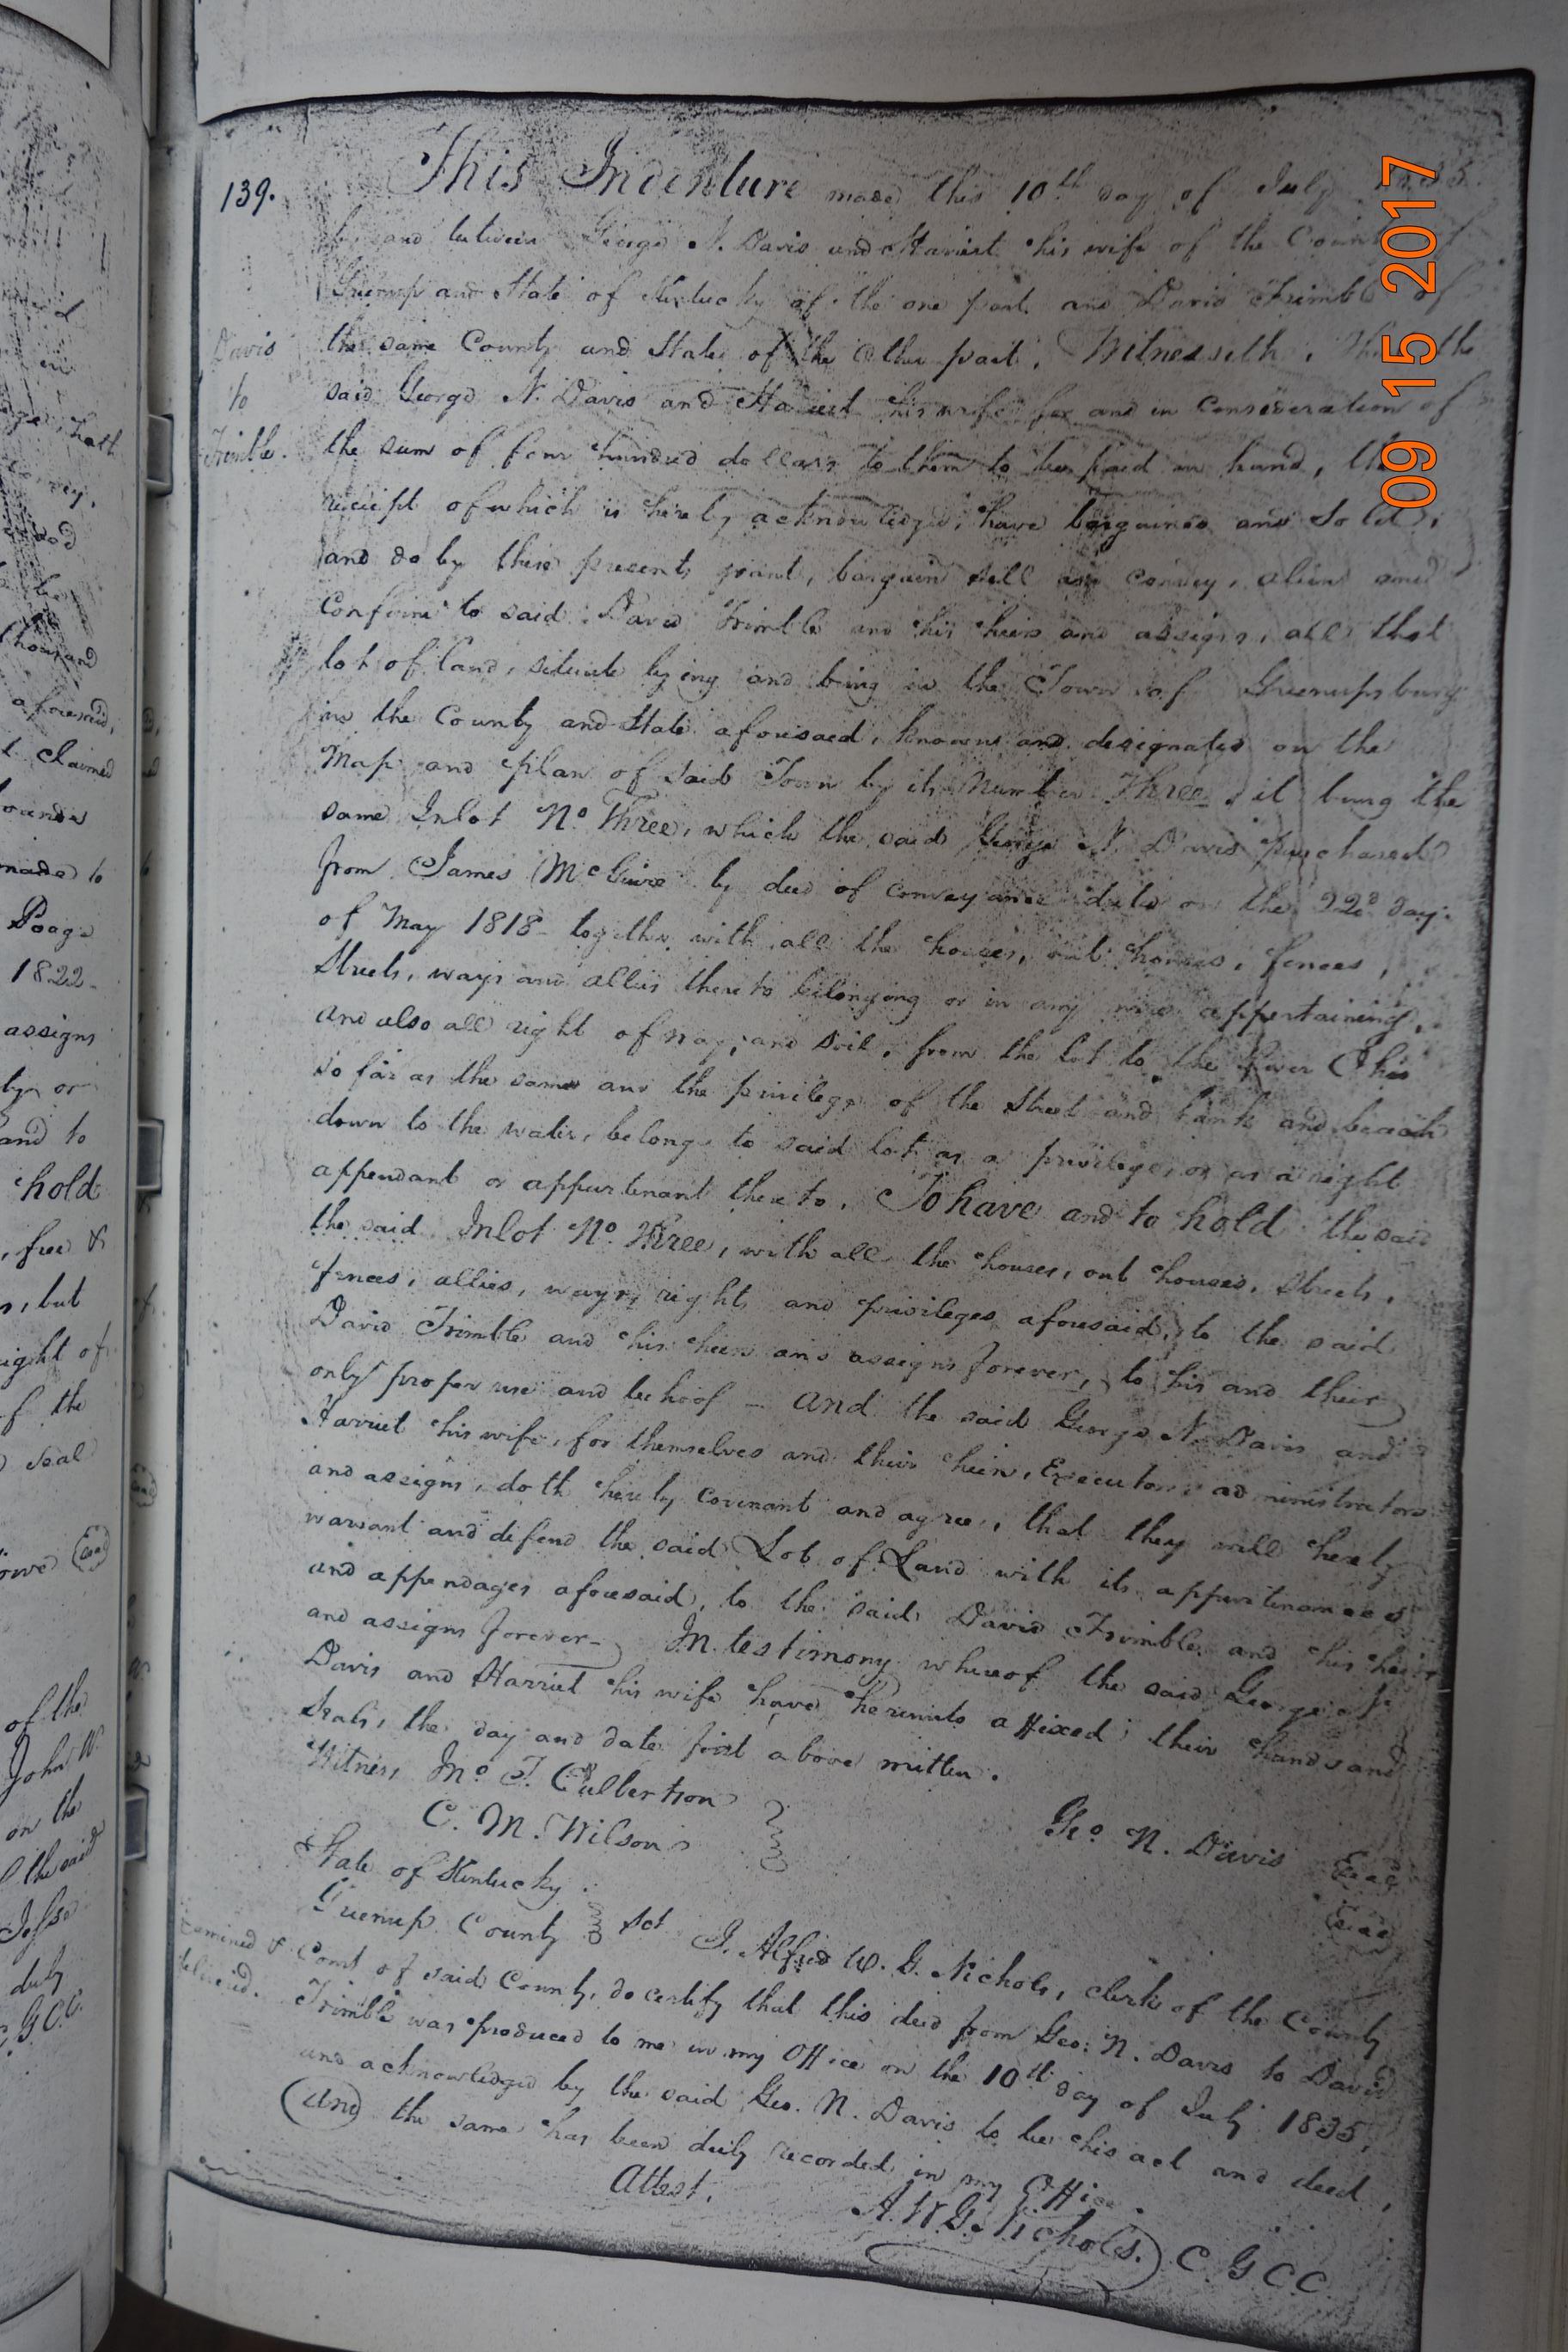 139.
This Indenture made this 10th day of July
by and between George N. Davis and Harriet his wife of the County of
Greenup and State of Kentucky of the one part and David Trimble of
Davis to Trimble.
the same County and State of the other part, Witnesseth, That the
said George N. Davis and Harriet his wife for and in consideration of
the sum of four hundred dollars to them to be paid in hand, the
receipt of which is hereby acknowledged, have bargained and sold,
and do by these presents grant, bargain sell and convey, alien and
confirm to said David Trimble and his heirs and assigns, all that
lot of land, situate lying and being in the Town of Greenupsburg
in the County and State aforesaid, known and designated on the
Map and plan of said Town by its Number Three, it being the
same Inlot No Three, which the said George N. Davis purchased
from James McGuire by deed of conveyance dated on the 22d day
of May 1818 together with all the houses, out houses, fences,
Streets, ways and allies thereto belonging or in any wise appertaining,
and also all right of way, and soil, from the lot to the River Ohio
so far as the same and the privilege of the Street and bank and beach
down to the water, belongs to said lot as a privilege, or as a right
appendant or appurtenant thereto. To have and to hold the said
the said Inlot No Three, with all the houses, out houses, Streets,
fences, allies, ways, rights and privileges aforesaid, to the said
David Trimble and his heirs and assigns forever, to his and their
only proper use and behoof - and the said George N. Davis and
Harriet his wife, for themselves and their heirs, Executors, administrators
and assigns, doth hereby covenant and agree, that they will hereby
warrant and defend the said Lot of Land with its appurtenances
and appendages aforesaid, to the said David Trimble and his heirs
and assigns forever - In testimony whereof the said George N.
Davis and Harriet his wife have hereunto affixed their hands and
Seals, the day and date first above written.
Witness Jno J. Culbertson
C. M. Wilson
Geo N. Davis Seal
Seal
State of Kentucky
Greenup County Sct I. Alfred W. G. Nichols, clerk of the County
Examined & delivered.
Court of said County, do certify that this deed from Geo: N. Davis to David
Trimble was produced to me in my Office on the 10th day of July 1835,
and acknowledged by the said Geo. N. Davis to be his act and deed,
(and) the same has been duly recorded in my Office.
Attest,
A. W. G. Nichols. C G C C
09 15 2017
aforesaid,
t claimed
made to
Poage
1822
assigns
and to
hold
, free &
, but
right of
f the
Seal
of the
John W.
on the
the said
Jesse
duly
G.C.C.